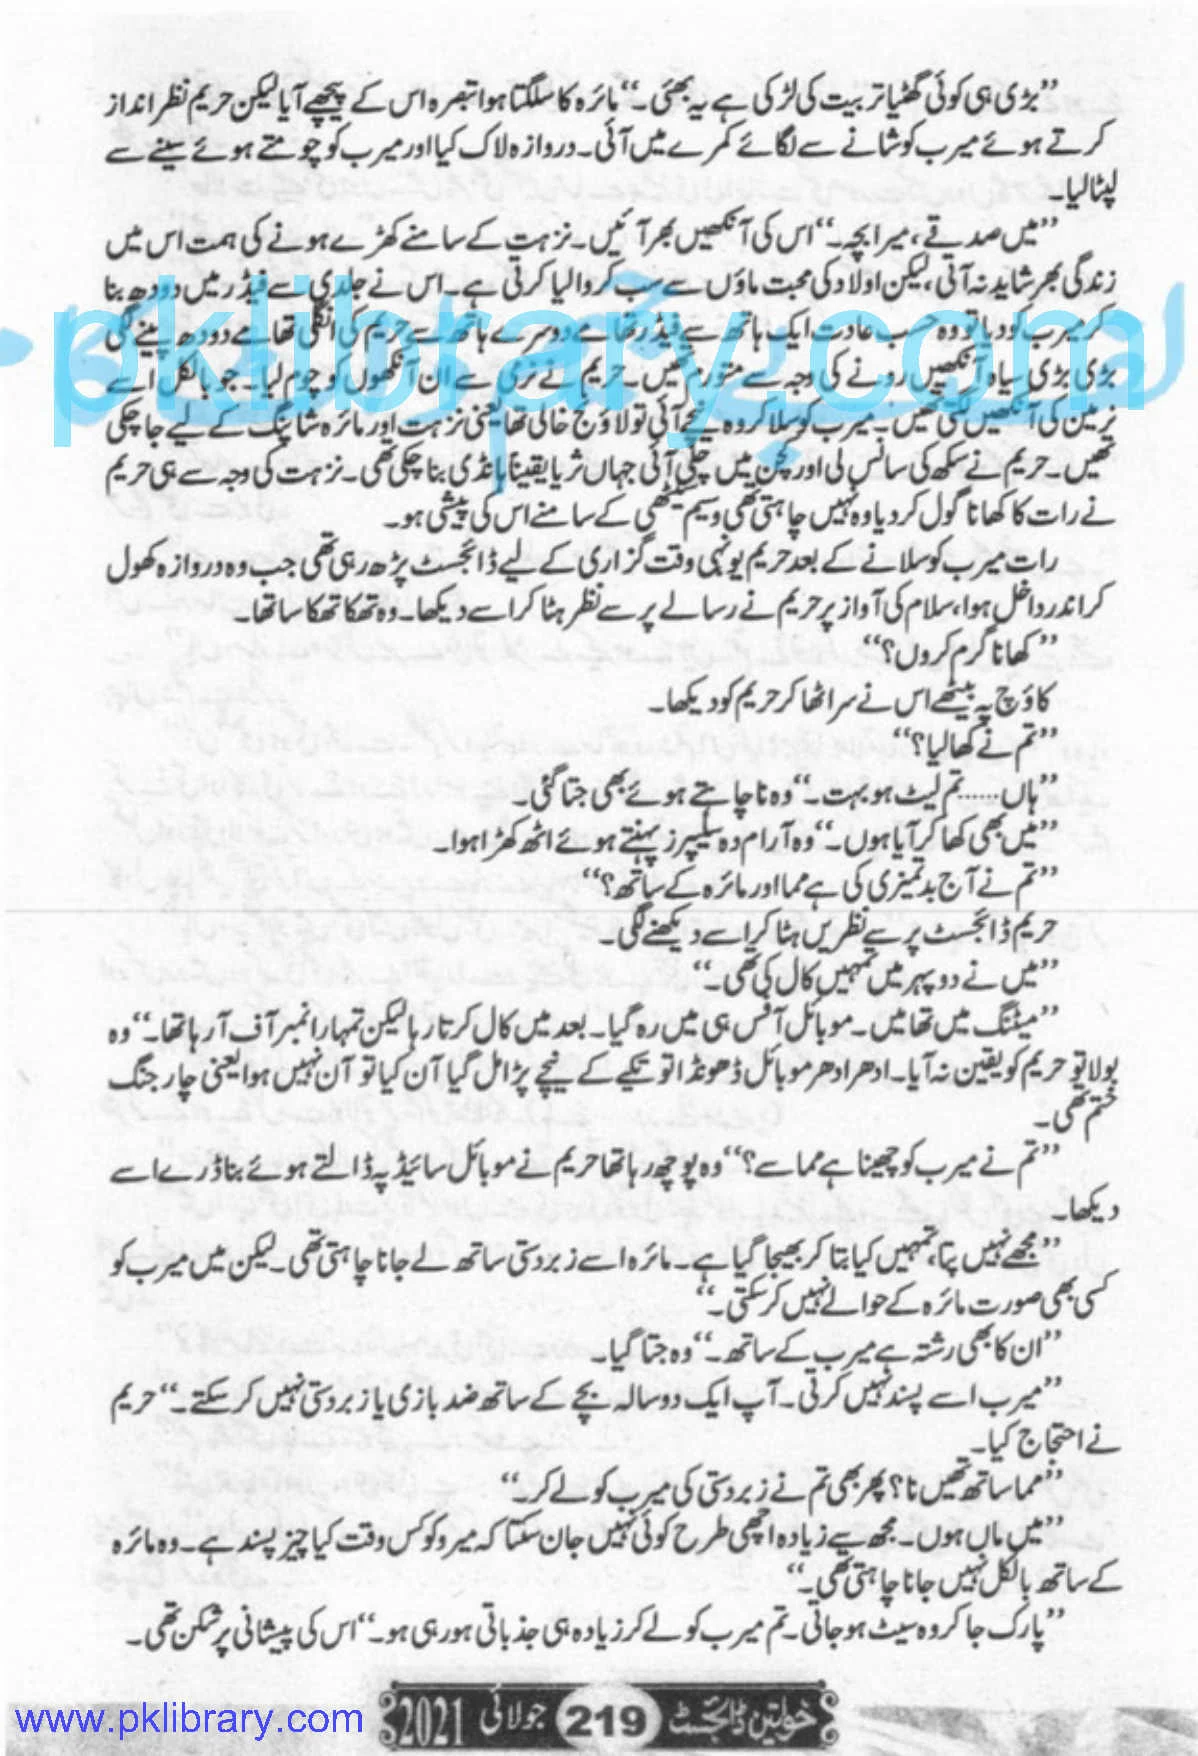 ”بڑی ہی کوئی گھٹیا تربیت کی لڑکی ہے یہ بھئی۔“ مائرہ کا سلگتا ہوا تبصرہ اس کے پیچھے آیا لیکن حریم نظر انداز
کرتے ہوئے میرب کو شانے سے لگائے کمرے میں آئی۔ دروازہ لاک کیا اور میرب کو چومتے ہوئے سینے سے
لپٹا لیا۔
”میں صدقے، میرا بچہ۔“ اس کی آنکھیں بھر آئیں۔ نزہت کے سامنے کھڑے ہونے کی ہمت اس میں
زندگی بھر شاید نہ آتی، لیکن اولاد کی محبت ماؤں سے سب کروا لیا کرتی ہے۔ اس نے جلدی سے فیڈر میں دودھ بنا
کر میرب کو دیا تو وہ حسب عادت ایک ہاتھ سے فیڈر تھامے دوسرے ہاتھ سے حریم کی انگلی تھامے دودھ پینے لگی
بڑی بڑی سیاہ آنکھیں رونے کی وجہ سے متورم تھیں۔ حریم نے نرمی سے ان آنکھوں کو چوم لیا۔ جو بالکل اسے
نرمین کی آنکھیں لگتی تھیں۔ میرب کو سلا کر وہ نیچے آئی تو لاؤنج خالی تھا یعنی نزہت اور مائرہ شاپنگ کے لیے جا چکی
تھیں۔ حریم نے سکھ کی سانس لی اور کچن میں چلی آئی جہاں ثریا یقیناً ہانڈی بنا چکی تھی۔ نزہت کی وجہ سے ہی حریم
نے رات کا کھانا گول کر دیا وہ نہیں چاہتی تھی وسیم سیٹھی کے سامنے اس کی پیشی ہو۔
رات میرب کو سلانے کے بعد حریم یونہی وقت گزاری کے لیے ڈائجسٹ پڑھ رہی تھی جب وہ دروازہ کھول
کر اندر داخل ہوا، سلام کی آواز پر حریم نے رسالے پر سے نظر ہٹا کر اسے دیکھا۔ وہ تھکا تھکا سا تھا۔
”کھانا گرم کروں؟“
کاؤچ پہ بیٹھے اس نے سر اٹھا کر حریم کو دیکھا۔
”تم نے کھا لیا؟“
”ہاں...... تم لیٹ ہو بہت۔“ وہ نا چاہتے ہوئے بھی جتا گئی۔
”میں بھی کھا کر آیا ہوں۔“ وہ آرام دہ سلیپرز پہنتے ہوئے اٹھ کھڑا ہوا۔
”تم نے آج بدتمیزی کی ہے مما اور مائرہ کے ساتھ؟“
حریم ڈائجسٹ پر سے نظریں ہٹا کر اسے دیکھنے لگی۔
”میں نے دوپہر میں تمہیں کال کی تھی۔“
”میٹنگ میں تھا میں۔ موبائل آفس ہی میں رہ گیا۔ بعد میں کال کرتا رہا لیکن تمہارا نمبر آف آ رہا تھا۔“ وہ
بولا تو حریم کو یقین نہ آیا۔ ادھر ادھر موبائل ڈھونڈا تو تکیے کے نیچے پڑا مل گیا آن کیا تو آن نہیں ہوا یعنی چارجنگ
ختم تھی۔
”تم نے میرب کو چھینا ہے مما سے؟“ وہ پوچھ رہا تھا حریم نے موبائل سائیڈ پہ ڈالتے ہوئے بنا ڈرے اسے
دیکھا۔
”مجھے نہیں پتا، تمہیں کیا بتا کر بھیجا گیا ہے۔ مائرہ اسے زبردستی ساتھ لے جانا چاہتی تھی۔ لیکن میں میرب کو
کسی بھی صورت مائرہ کے حوالے نہیں کر سکتی۔“
”ان کا بھی رشتہ ہے میرب کے ساتھ۔“ وہ جتا گیا۔
”میرب اسے پسند نہیں کرتی۔ آپ ایک دو سالہ بچے کے ساتھ ضد بازی یا زبردستی نہیں کر سکتے۔“ حریم
نے احتجاج کیا۔
”مما ساتھ تھیں نا؟ پھر بھی تم نے زبردستی کی میرب کو لے کر۔“
”میں ماں ہوں۔ مجھ سے زیادہ اچھی طرح کوئی نہیں جان سکتا کہ میرو کو کس وقت کیا چیز پسند ہے۔ وہ مائرہ
کے ساتھ بالکل نہیں جانا چاہتی تھی۔“
”پارک جا کر وہ سیٹ ہو جاتی۔ تم میرب کو لے کر زیادہ ہی جذباتی ہو رہی ہو۔“ اس کی پیشانی پر شکن تھی۔
خواتین ڈائجسٹ 219 جولائی 2021
www.pklibrary.com
pklibrary.com